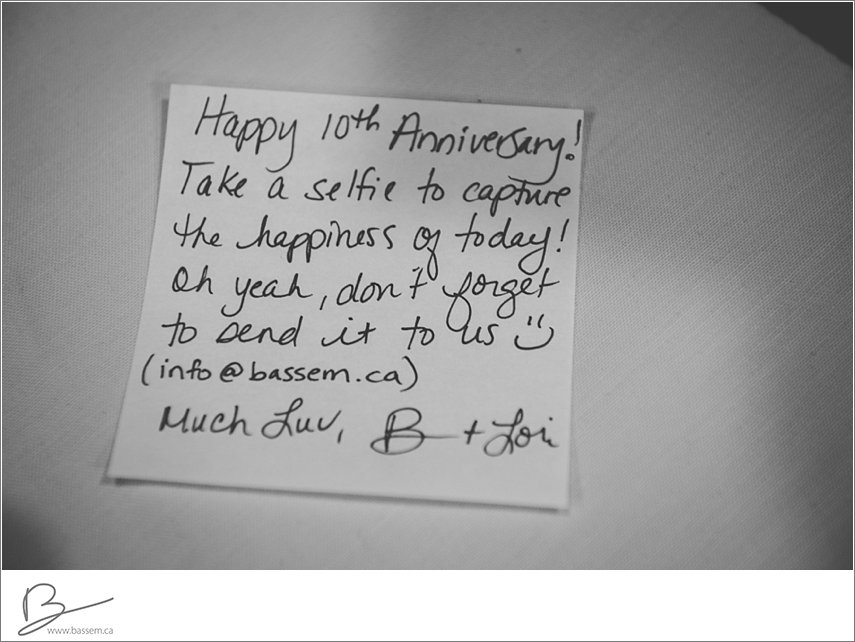 Happy 10th Anniversary!
Take a selfie to capture
the happiness of today!
Oh yeah, don't forget
to send it to us
(info@bassem.ca)
Much Luv, B + Lori
B
www.bassem.ca